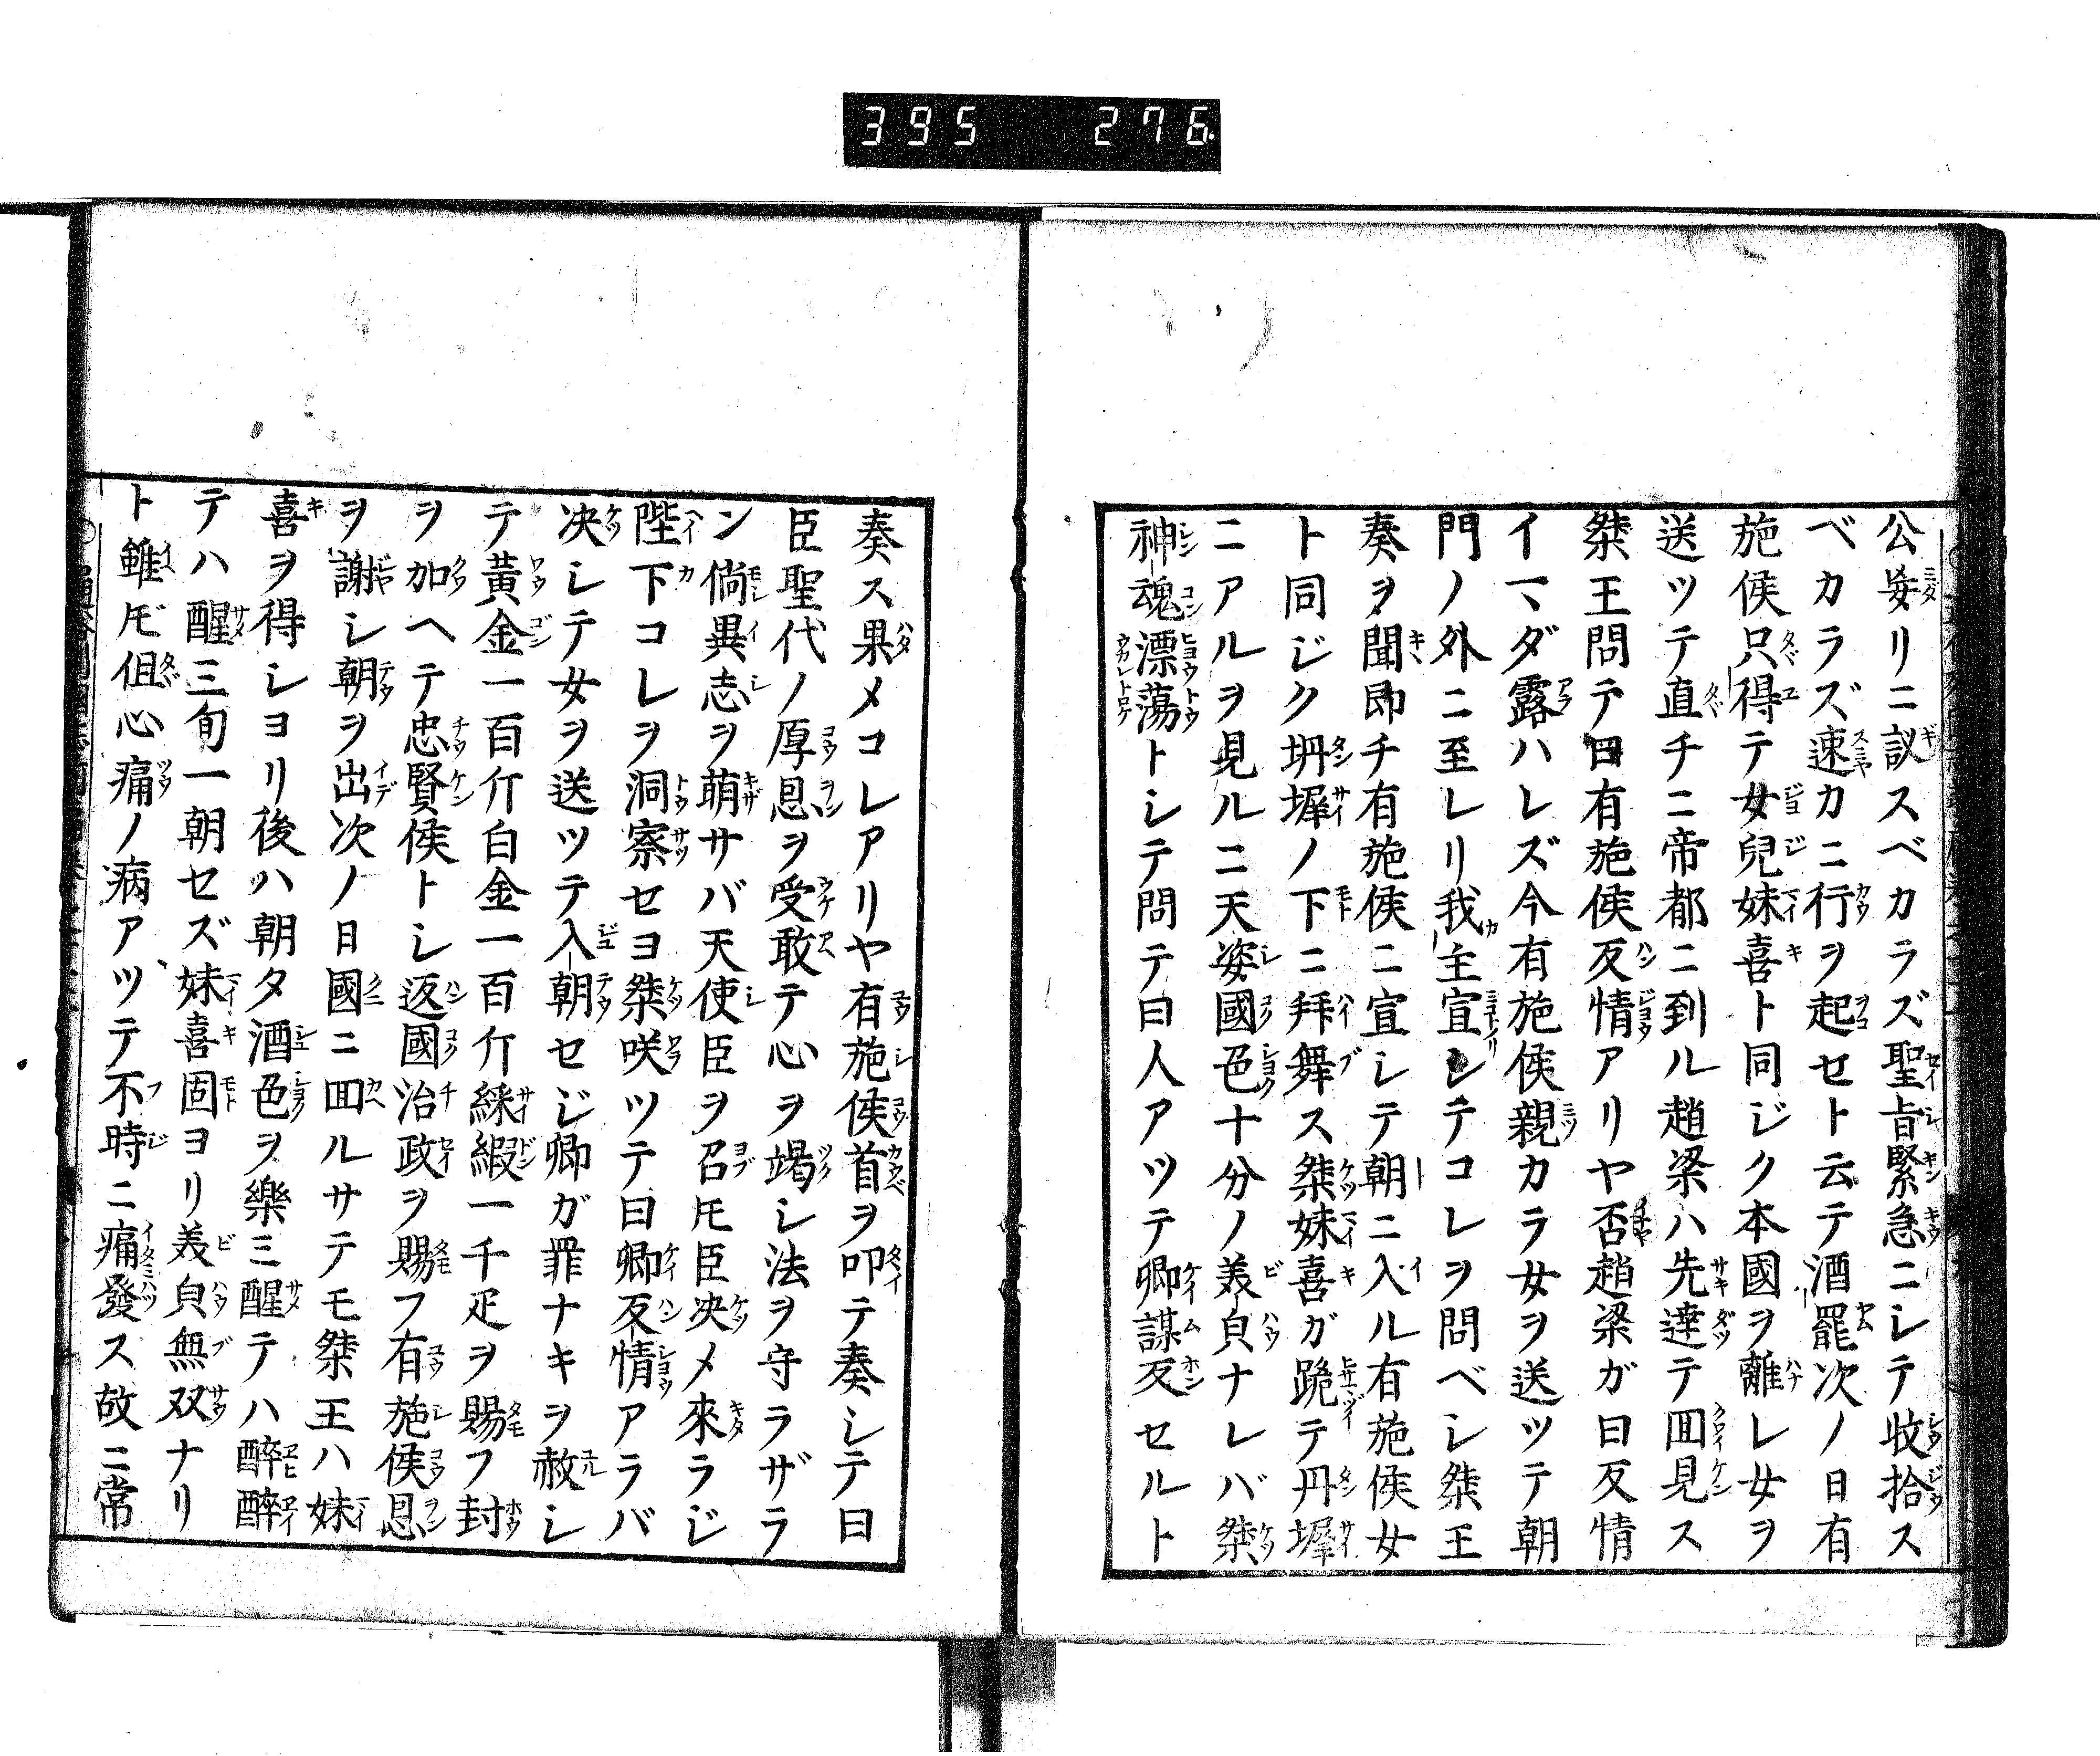 395 276
公妄リニ議スベカラズ聖旨緊急ニシテ收拾ス
ベカラズ速カニ行ヲ起セト云テ酒罷次ノ日有
施侯只得テ女兒妹喜ト同ジク本國ヲ離レ女ヲ
送ツテ直チニ帝都ニ到ル趙梁ハ先達テ囬見ス
桀王問テ曰有施侯反情アリヤ否趙梁ガ曰反情
イマダ露ハレズ今有施侯親カラ女ヲ送ツテ朝
門ノ外ニ至レリ我主宣シテコレヲ問ベシ桀王
奏ヲ聞即チ有施侯ニ宣シテ朝ニ入ル有施侯女
ト同ジク坍墀ノ下ニ拜舞ス桀妹喜ガ跪テ丹墀
ニアルヲ見ルニ天姿國色十分ノ美皃ナレバ桀
神魂漂蕩トシテ問テ曰人アツテ卿謀反セルト
奏ス果メコレアリヤ有施侯首ヲ叩テ奏シテ曰
臣聖代ノ厚恩ヲ受敢テ心ヲ竭シ法ヲ守ラザラ
ン倘異志ヲ萌サバ天使臣ヲ召トモ臣决メ來ラジ
陛下コレヲ洞察セヨ桀咲ツテ曰卿反情アラバ
决シテ女ヲ送ツテ入朝セジ卿ガ罪ナキヲ赦シ
テ黃金一百斤白金一百斤綵緞一千疋ヲ賜フ封
ヲ加ヘテ忠賢侯トシ返國治政ヲ賜フ有施侯恩
ヲ謝シ朝ヲ出次ノ日國ニ囬ルサテモ桀王ハ妹
喜ヲ得シヨリ後ハ朝タ酒色ヲ樂ミ醒テハ醉醉
テハ醒三旬一朝セズ妹喜固ヨリ美皃無双ナリ
ト雖トモ伹心痛ノ病アツテ不時ニ痛發ス故ニ常